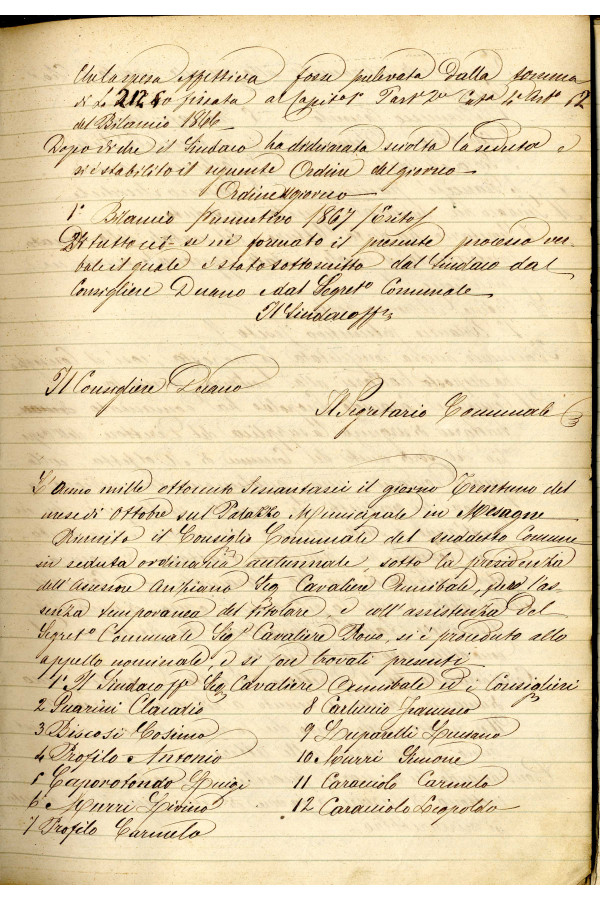 che la spesa effettiva fosse prelevata dalla somma
di L 212 50 fissata al Capitolo Parte 2a Cat. 4a Arto 12
del Bilancio 1866
Dopo di che il Sindaco ha dichiarata sciolta la seduta e
si è stabilito il seguente Ordine del giorno
Ordine del giorno
1° Bilancio preventivo 1867 (Esito)
Di tutto ciò se ne formato il presente processo ver-
bale il quale è stato sottoscritto dal Sindaco dal
Consigliere Duano e dal Segreto Comunale
Il Sindaco ff
Il Consigliere Duano
Il Segretario Comunale
L'anno mille ottocento sessantasei il giorno Trentuno del
mese di Ottobre sul Palazzo Municipale in Mesagne
Riunito il Consiglio Comunale del suddetto Comune
in seduta ordinaria autunnale, sotto la presidenza
dell'Assessore Anziano Sig Cavaliere Annibale, per l'as-
senza temporanea del titolare, e coll'assistenza del
Segreto Comunale Sigr Cavaliere Roso, si è proceduto allo
appello nominale, e si son trovati presenti
1° Il Sindaco ff Sig Cavaliere Annibale ed i Consiglieri
2 Guarini Clarario
8 Carluccio Francesco
3 Biscosi Cosimo
9 Luparelli Luciano
4 Profilo Antonio
10 Murri Simone
5 Caporotondo Luigi
11 Caracciolo Carmelo
6 Murri
12 Caracciolo Leopoldo
7 Profilo Carmelo